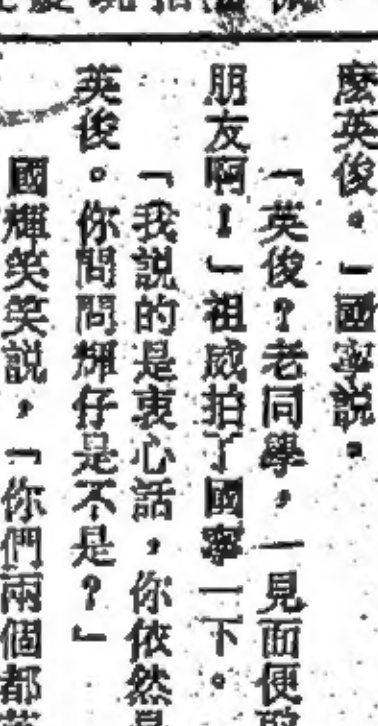 麼英俊。」國寧說。
「英俊？老同學，一見面便
朋友啊！」祖威拍了國寧一下。
「我說的是衷心話，你依然是
英俊。你問問輝仔是不是？」
國輝笑笑說，「你們兩個都